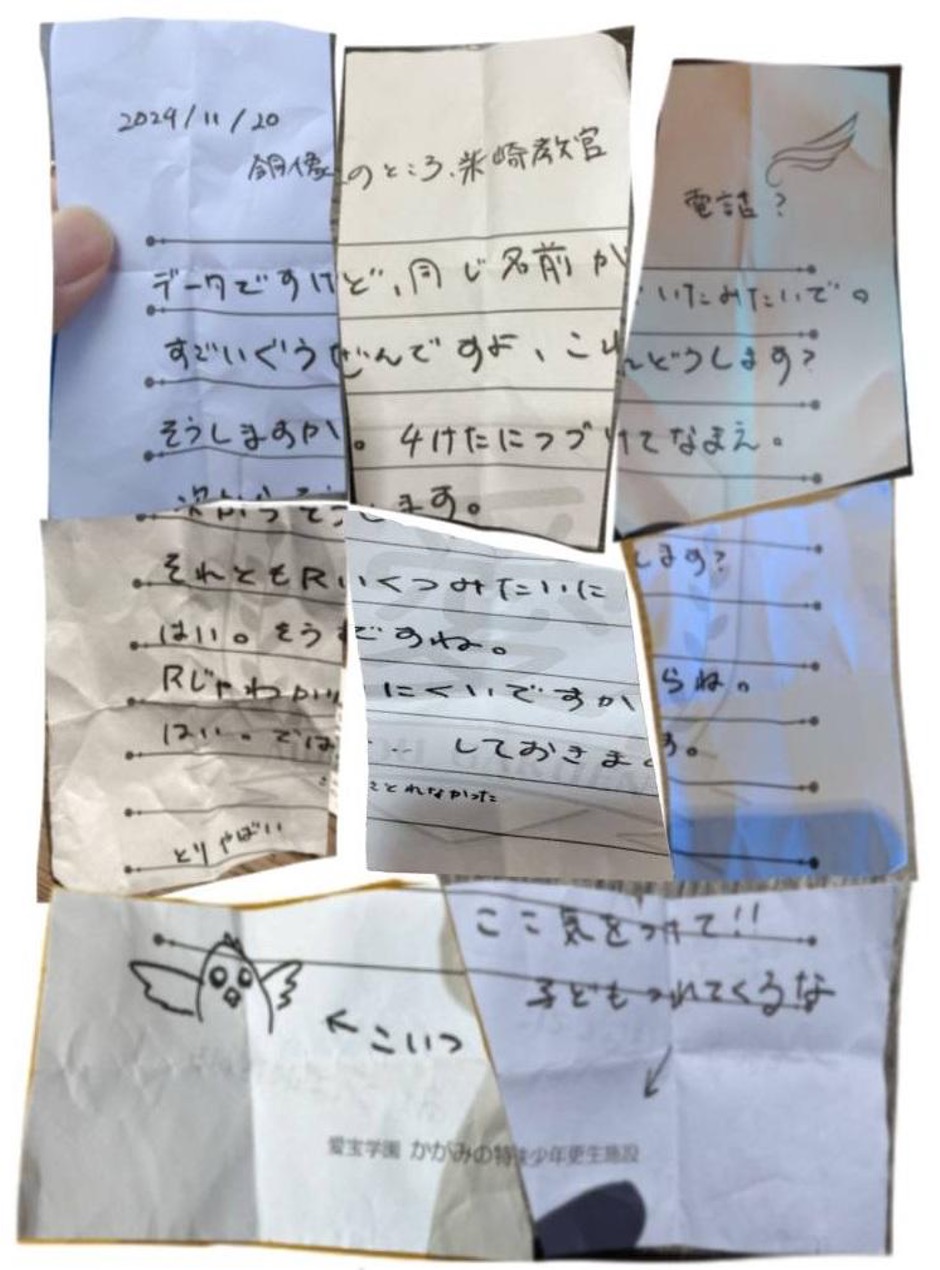 2024/11/20
銅像のところ、米崎教官
電話?
データですけど、同じ名前がいたみたいで。
すごいぐうぜんですよ、これどうします?
そうしますか。4けたにつづけてなまえ。
次からそうします。
それともRいくつみたいにします?
はい。そうですね。
Rじゃわかりにくいですからね。
はい。では... しておきます。
ことれなかった
とりやばい
ここ気をつけて!!
子どもつれてくるな
←こいつ
愛宝学園 かがみの特殊少年更生施設